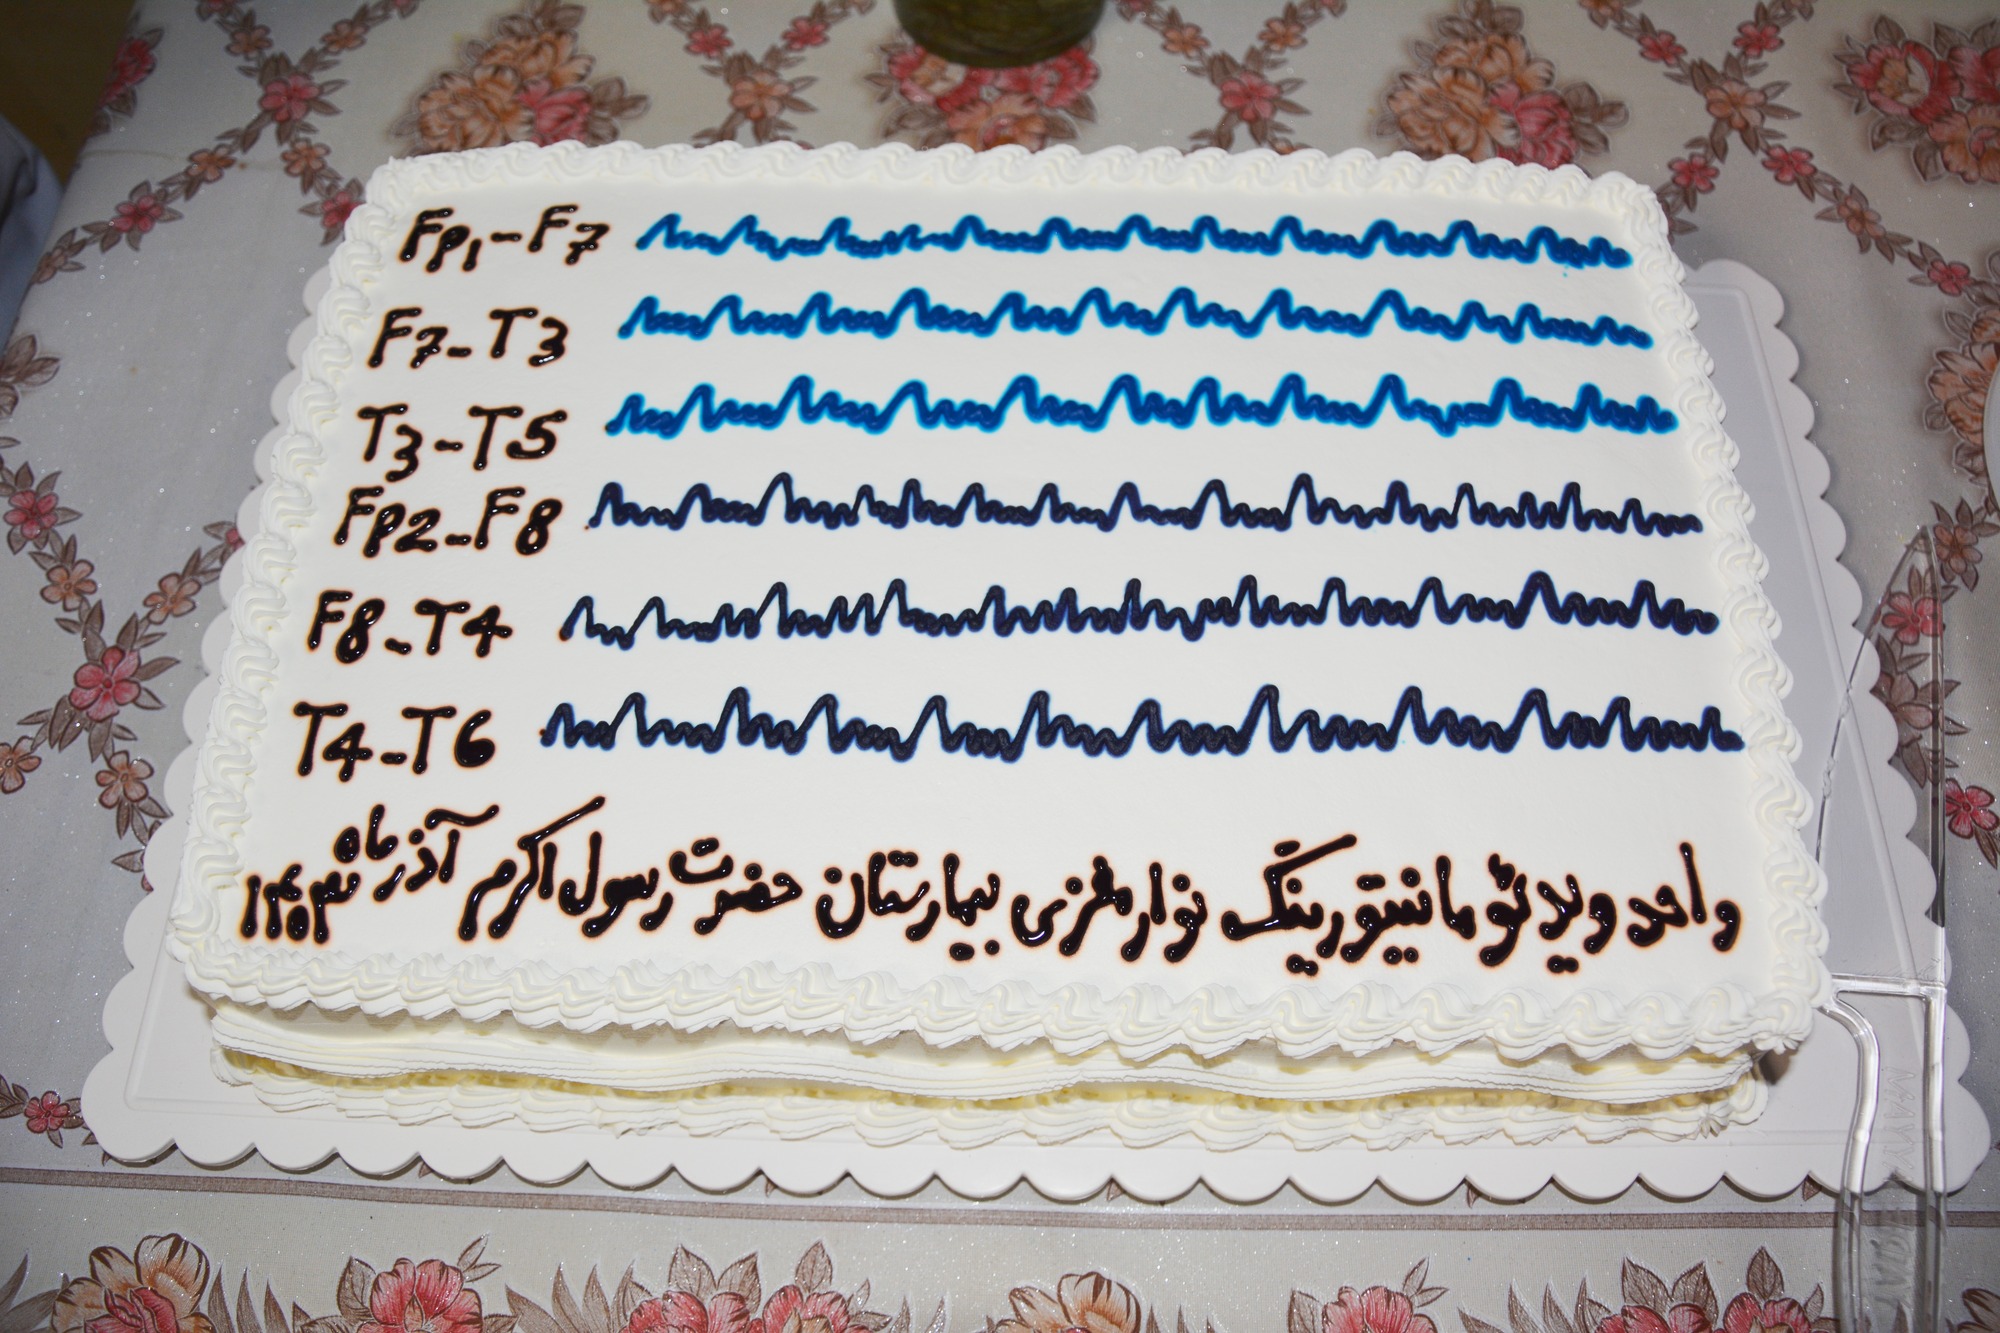 Fp1-F7
F7-T3
T3-T5
Fp2-F8
F8-T4
T4-T6
واحد ویدئو مانیتورینگ نوار مغزی بیمارستان حضرت رسول اکرم آذر ماه ۱۴۰۳